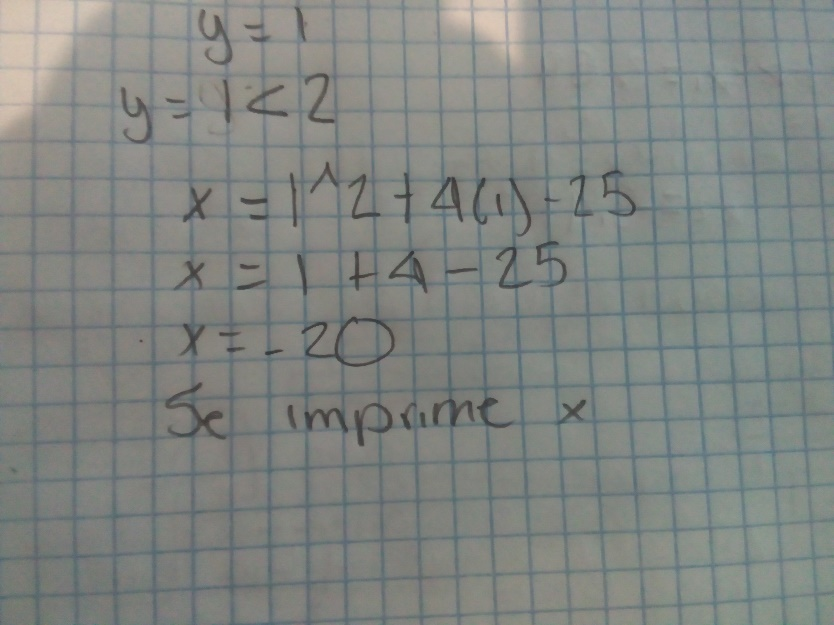 y = 1
y = 1 < 2
x = 1^2 + 4(1) - 25
x = 1 + 4 - 25
x = - 20
Se imprime x